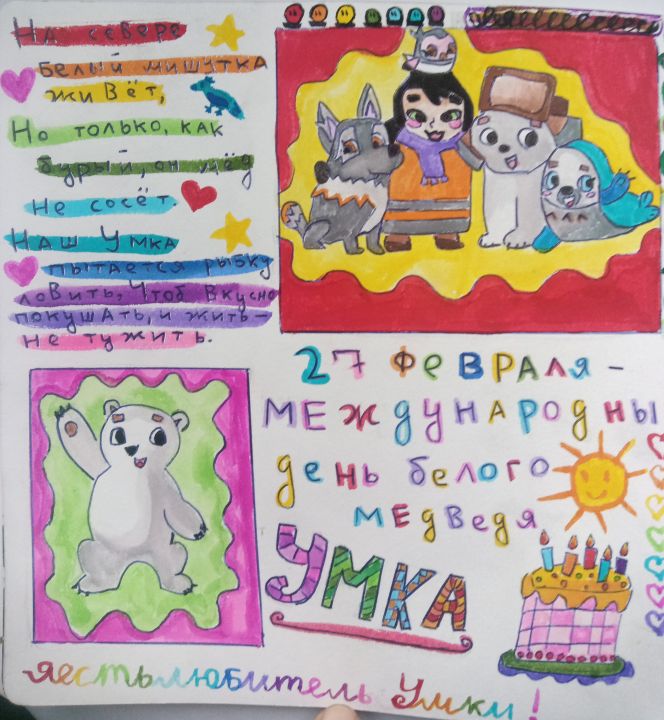 На севере
белый мишутка
живёт,
Но только, как
бурый, он мёд
Не сосёт.
Наш Умка
пытается рыбку
ловить, Чтоб вкусно
покушать, и жить-
не тужить.
27 февраля -
международны
день белого
медведя
УМКА
я есть любитель Умки!